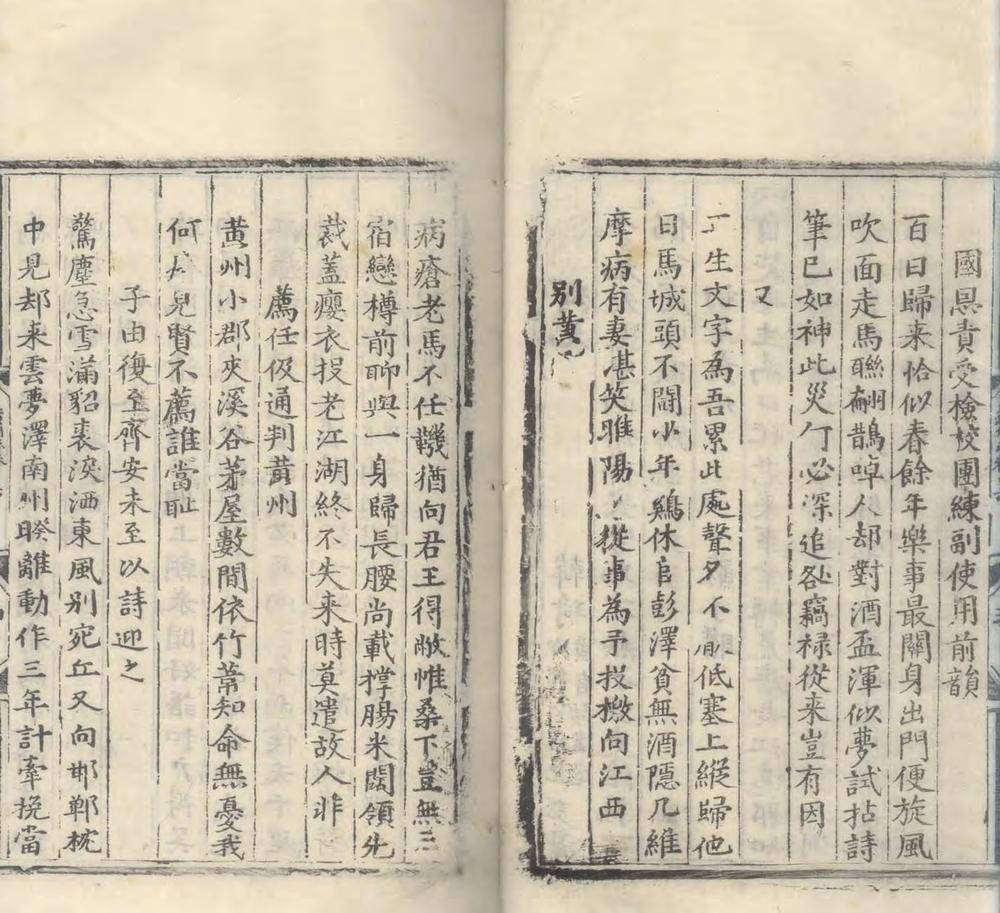 國恩責受檢校團練副使用前韻
百日歸来恰似春餘年樂事最關身出門便旋風
吹面走馬聯翩鵲啅人却對酒盃渾似夢試拈詩
筆已如神此災何必深追咎竊禄從来豈有因
又
生文字為吾累此處聲名不厭低塞上縱歸他
日馬城頭不鬪少年鷄休官彭澤貧無酒隱几維
摩病有妻堪笑睢陽從事為予投檄向江西
別黄
病瘡老馬不任鞿猶向君王得敝惟桑下豈無三
宿戀樽前聊與一身歸長腰尚載撑腸米闊領先
裁蓋癭衣投老江湖終不失来時莫遣故人非
薦任伋通判黄州
黄州小郡夾溪谷茅屋數間依竹葦知命無憂我
何兒賢不薦誰當耻
子由復至齊安未至以詩迎之
驚塵急雪滿貂裘淚洒東風別宛丘又向邯鄲枕
中見却来雲夢澤南州暌離動作三年計牽挽當